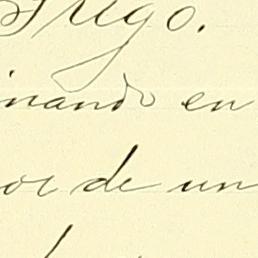 Trigo.
inando en
or de un